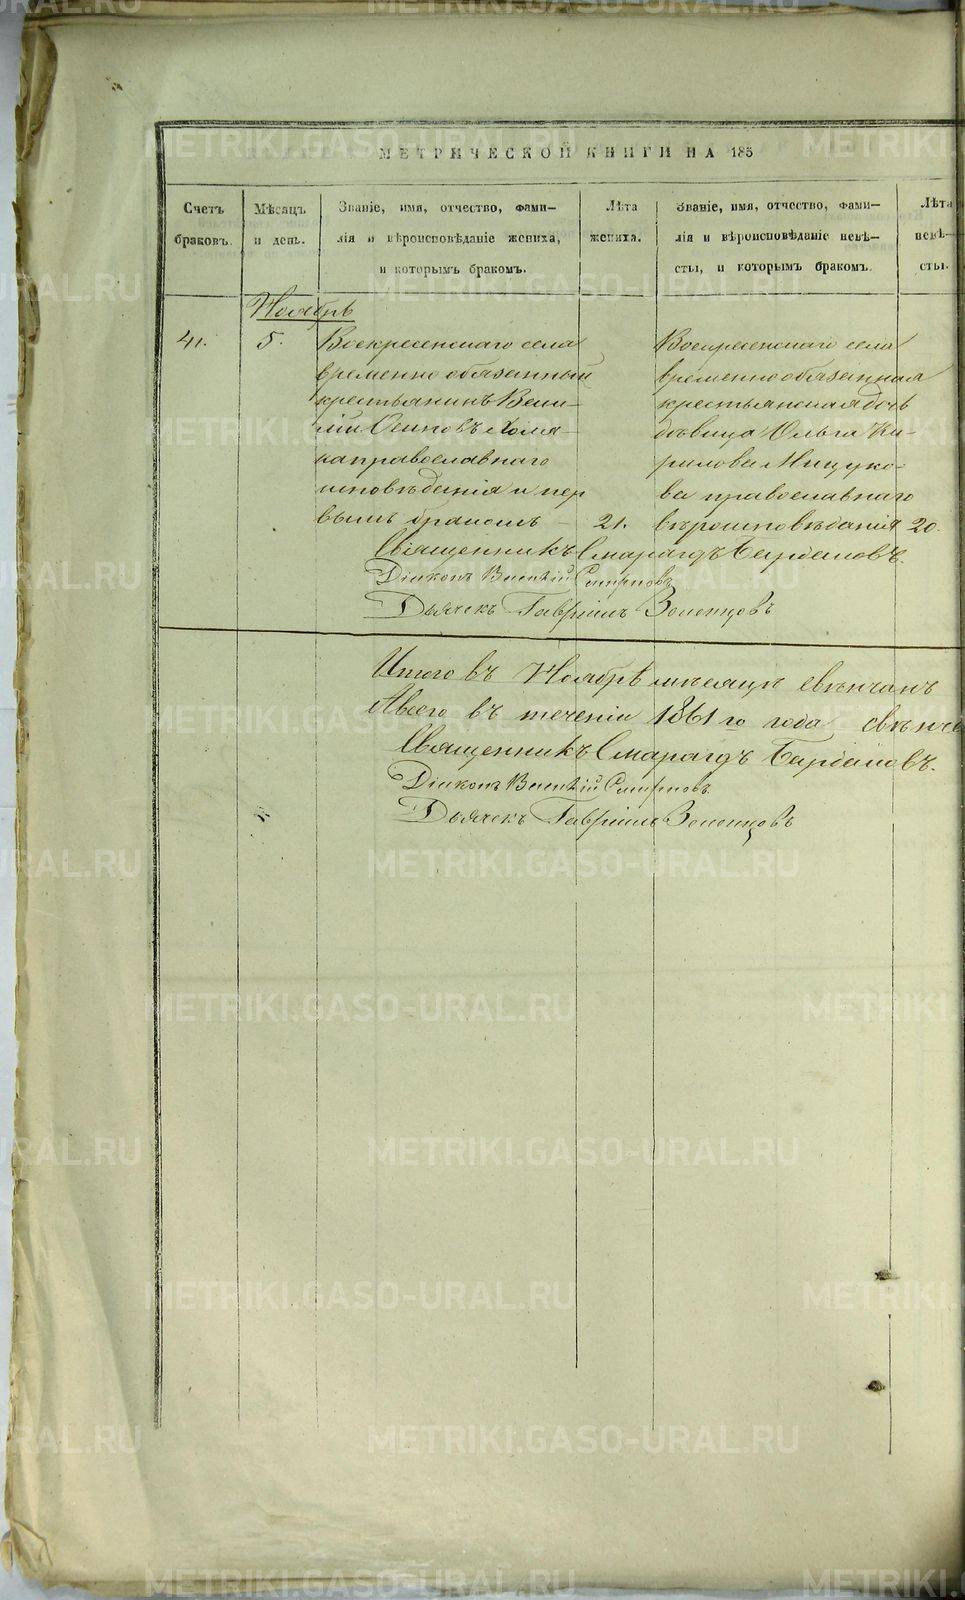 МЕТРИЧЕСКОЙ КНИГИ НА 185
Счетъ браковъ.
Мѣсяцъ и день.
Званіе, имя, отчество, фами-
лія и вѣроисповѣданіе жениха,
и которымъ бракомъ.
Лѣта жениха.
Званіе, имя, отчество, фами-
лія и вѣроисповѣданіе невѣ-
сты, и которымъ бракомъ.
Лѣта невѣ-
сты.
Ноябрь
41.
5.
Воскресенскаго села
временно обязанный
крестьянинъ Васи-
лій Осиповъ Холя-
ка православнаго
исповѣданія и пер
вымъ бракомъ
21.
Воскресенскаго села
временно обязанная
крестьянская дочь
дѣвица Ольга Ки-
рилова Мицуко-
ва православнаго
вѣроисповѣданія
20.
Священникъ Смарагдъ
Діаконъ Смирновъ
Дьячекъ Гавріилъ
Итого въ Ноябрѣ мѣсяцѣ свѣнчанъ
Авсего въ теченіи 1861 го года свѣнче
Священникъ Смарагдъ
Діаконъ Смирновъ
Дьячекъ Гавріилъ
METRIKI.GASO-URAL.RU